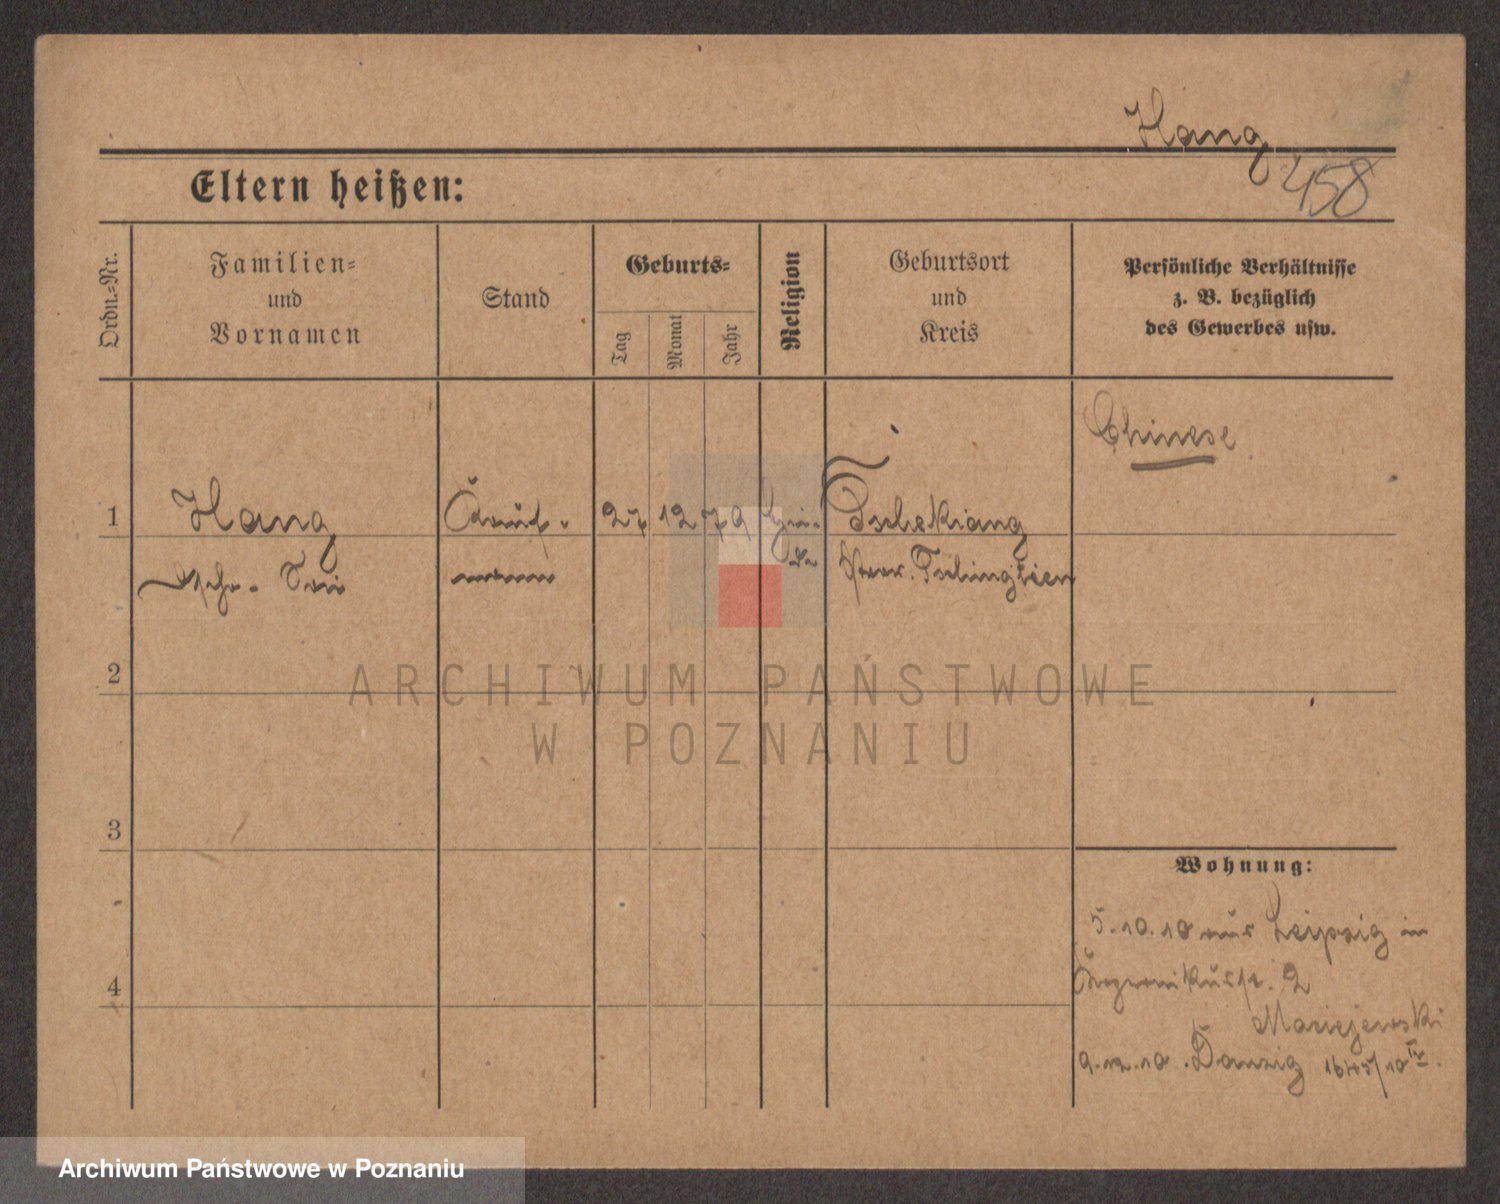 Hang
458
Eltern heißen:
Ordn.-Nr.
Familien-
und
Vornamen
Stand
Geburts-
Tag
Monat
Jahr
Religion
Geburtsort
und
Kreis
Persönliche Verhältnisse
z. B. bezüglich
des Gewerbes usw.
Chinese
1
Hang
Kauf-
mann
27 12 79
Tschekiang
Tschingtien
2
3
4
Wohnung:
5.10.10 aus Leipzig in
2
Maciejewski
9.12.10. Danzig
ARCHIWUM PAŃSTWOWE
W POZNANIU
Archiwum Państwowe w Poznaniu